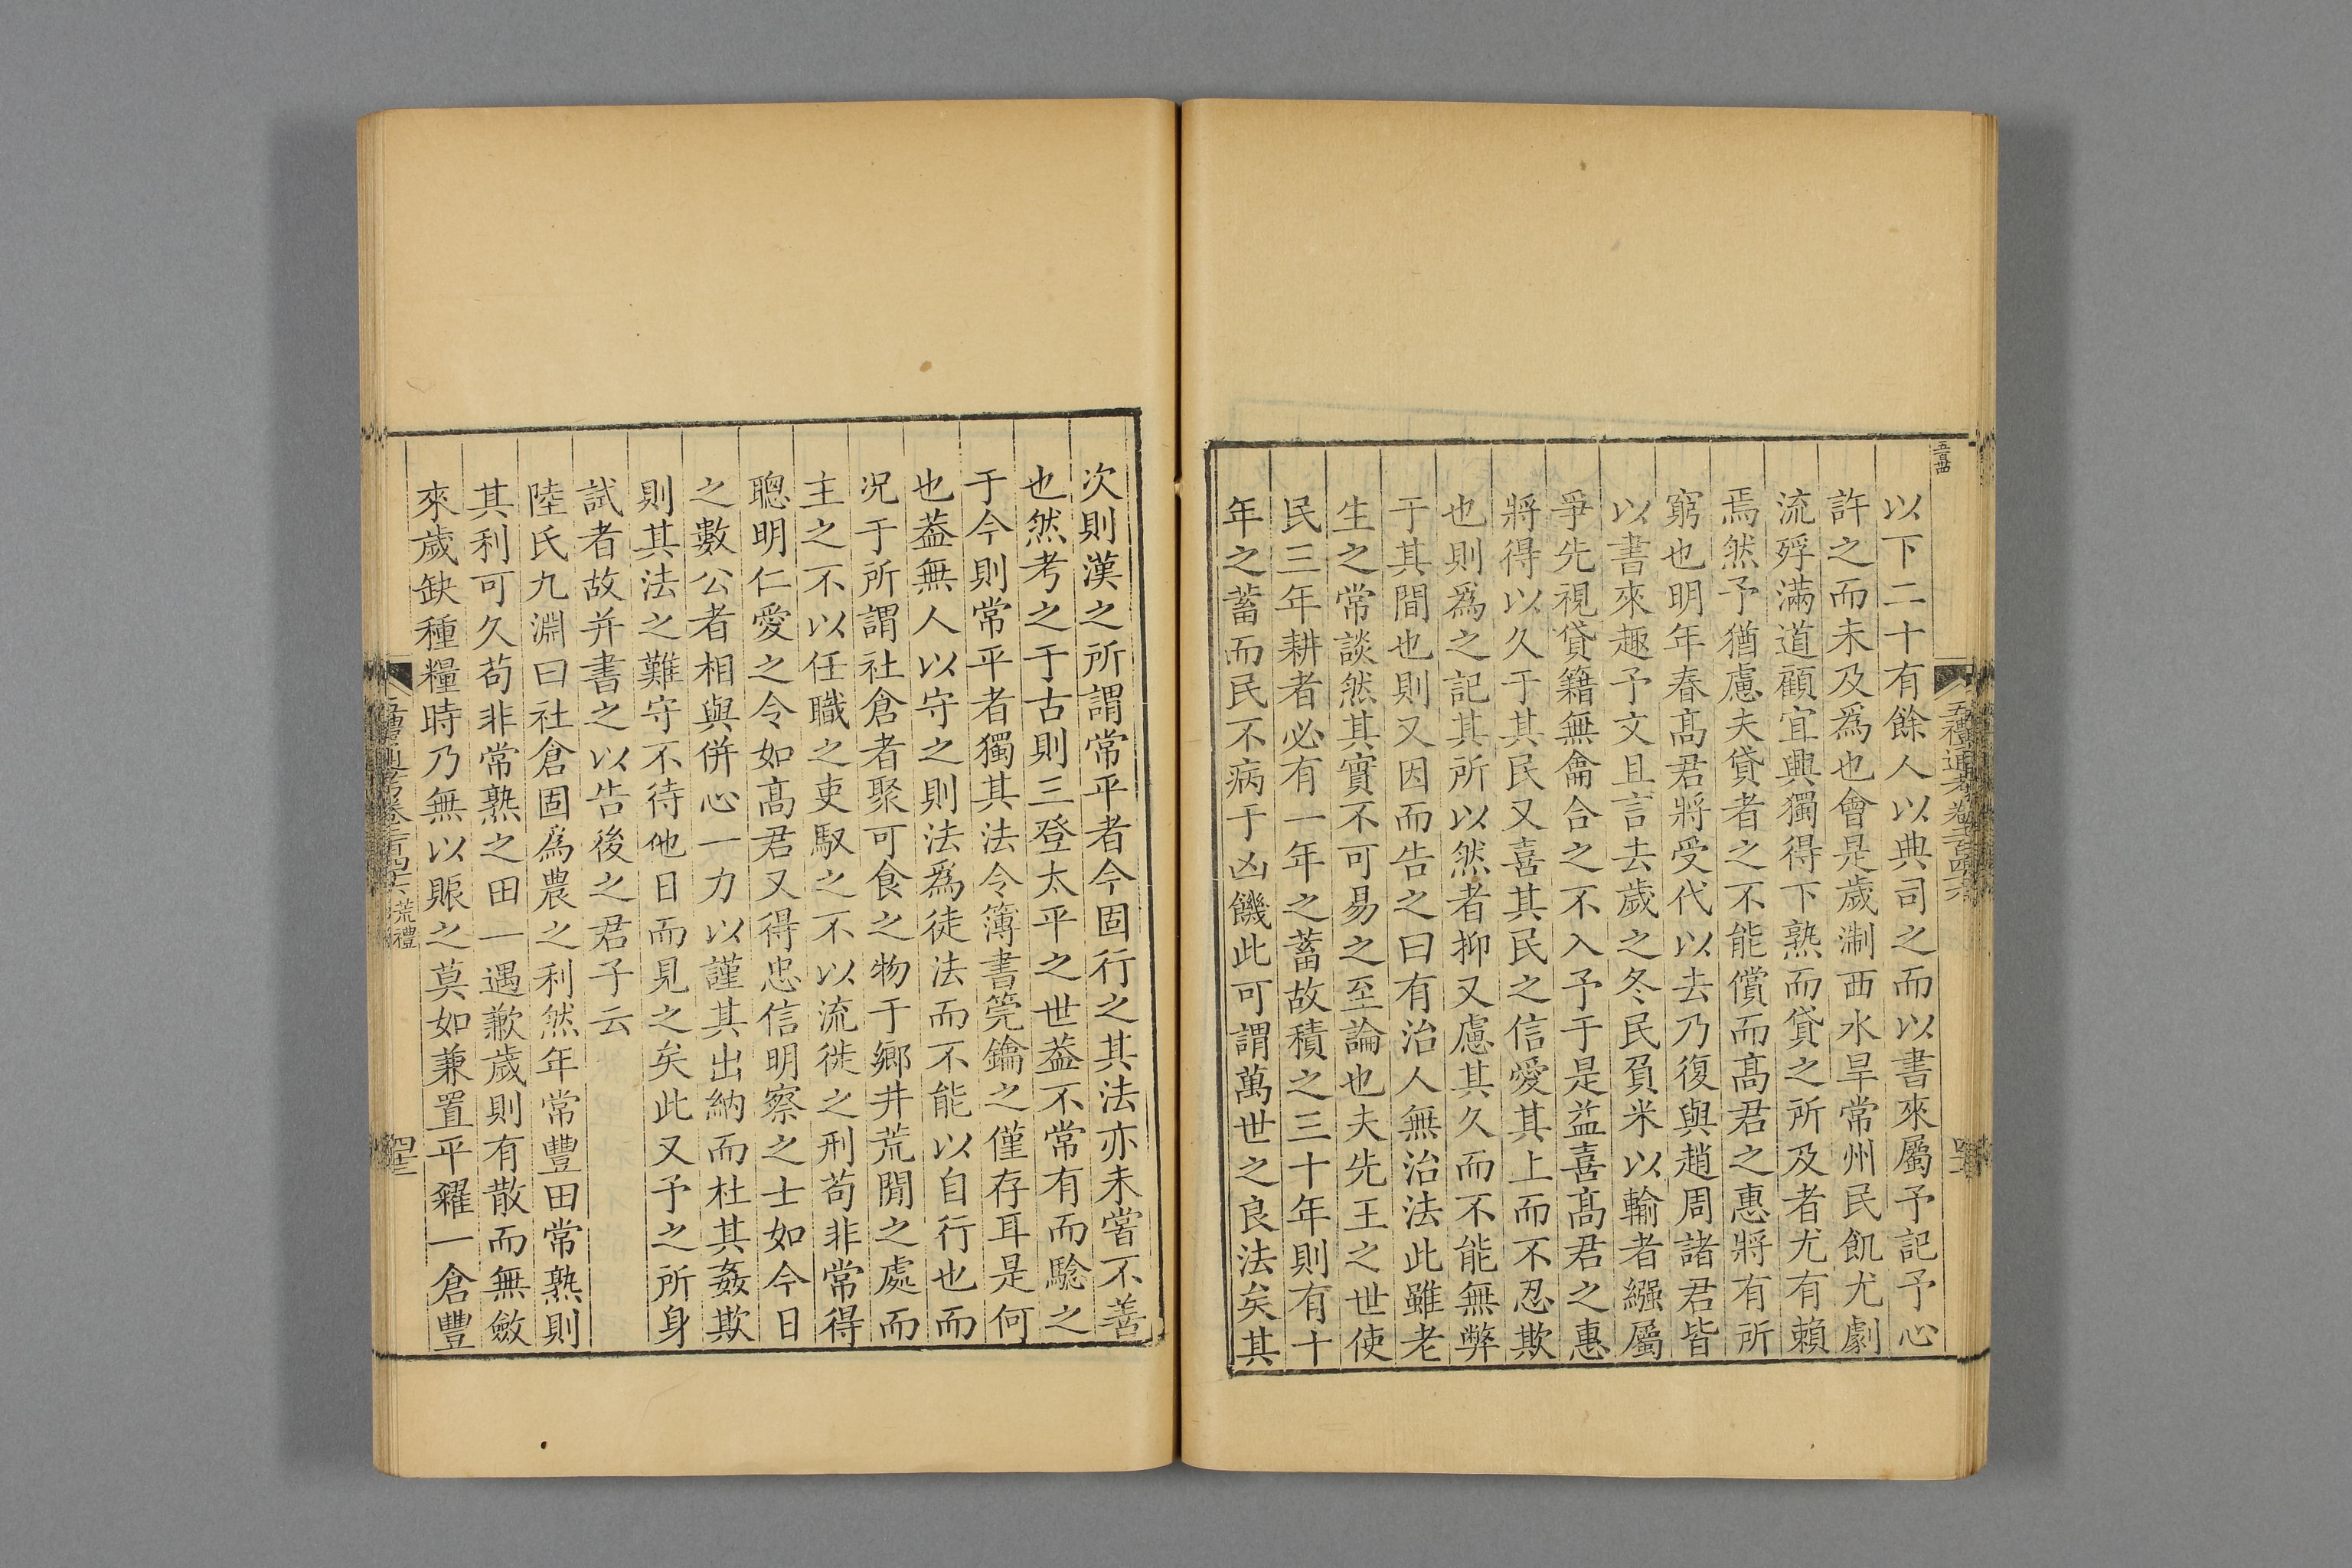 五百卌
五禮通考卷二百四十六
以下二十有餘人以典司之而以書來屬予記予心
許之而未及爲也會是歲淛西水旱常州民飢尤劇
流殍滿道顧宜興獨得下熟而貸之所及者尤有賴
焉然予猶慮夫貸者之不能償而髙君之惠將有所
窮也明年春髙君將受代以去乃復與趙周諸君皆
以書來趣予文且言去歲之冬民負米以輸者繦屬
爭先視貸籍無龠合之不入予于是益喜髙君之惠
將得以久于其民又喜其民之信愛其上而不忍欺
也則爲之記其所以然者抑又慮其久而不能無弊
于其間也則又因而告之曰有治人無治法此雖老
生之常談然其實不可易之至論也夫先王之世使
民三年耕者必有一年之蓄故積之三十年則有十
年之蓄而民不病于凶饑此可謂萬世之良法矣其
次則漢之所謂常平者今固行之其法亦未嘗不善
也然考之于古則三登太平之世葢不常有而騐之
于今則常平者獨其法令簿書筦鑰之僅存耳是何
也葢無人以守之則法爲徒法而不能以自行也而
况于所謂社倉者聚可食之物于鄉井荒閒之處而
主之不以任職之吏馭之不以流徙之刑苟非常得
聰明仁愛之令如髙君又得忠信明察之士如今日
之數公者相與併心一力以謹其出納而杜其姦欺
則其法之難守不待他日而見之矣此又予之所身
試者故并書之以告後之君子云
陸氏九淵曰社倉固爲農之利然年常豐田常熟則
其利可久苟非常熟之田一遇歉歲則有散而無斂
來歲缺種糧時乃無以賑之莫如兼置平糴一倉豐
五禮通考卷二百四十六 荒禮